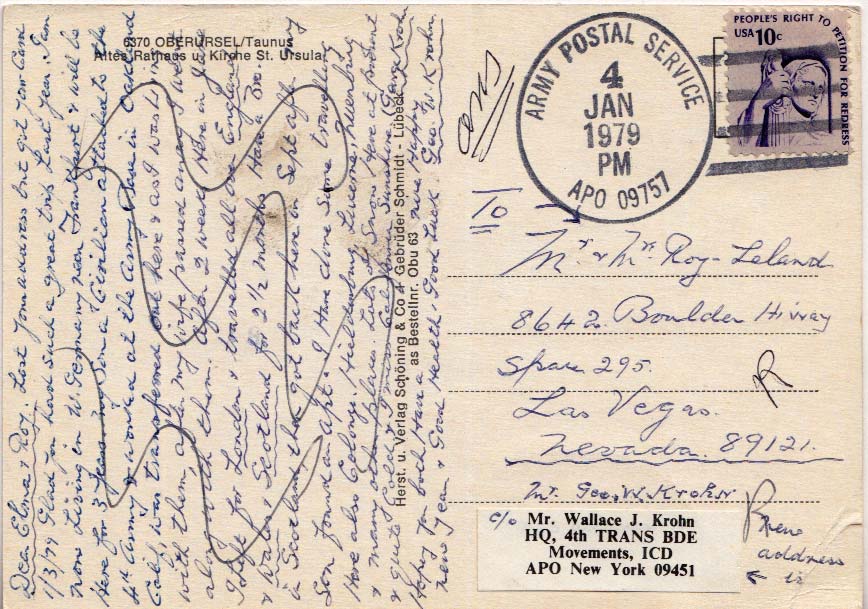 6370 OBERURSEL/Taunus
Altes Rathaus u. Kirche St. Ursula
Dear Elma & Roy. Lost your address but got your Card
1/3/79 Glad you had such a great trip Last year. I am
now Living in W. Germany near Frankfurt & will be
Here for 3 Years my Son a Civilian attached to the
4th Army & worked at the Army Base in Oakland
Calif was transferred out here & as I was Living
with them, after my wife passed away I went
along with them. after 2 weeks Here in June
I Left for London & travelled all over England
& Wales & Scotland for 2 1/2 months Have a Bro
in Scotland then got back here in Sept after my
Son found an apt. & I Have done Some travelling
Have also Cologne, Heidelburg, Lucerne,
& many other places. Lots of Snow Here at Present
& quite Cold & I miss California Sunshine,
Hoping you both Have a nice Happy
new year & Good Health & Good Luck. Geo. W. Krohn
Herst. u. Verlag Schöning & Co + Gebrüder Schmidt - Lübeck
as Bestellnr. Obu 63
ARMY POSTAL SERVICE
4
JAN
1979
PM
APO 09757
PEOPLE'S RIGHT TO PETITION FOR REDRESS
USA 10c
ans
To
Mr & Mrs Roy Leland
8642 Boulder Hiway
Space 295.
R
Las Vegas.
Nevada. 89121.
Mr. Geo. W. Krohn
c/o Mr. Wallace J. Krohn
HQ, 4th TRANS BDE
Movements, ICD
APO New York 09451
new
address
is